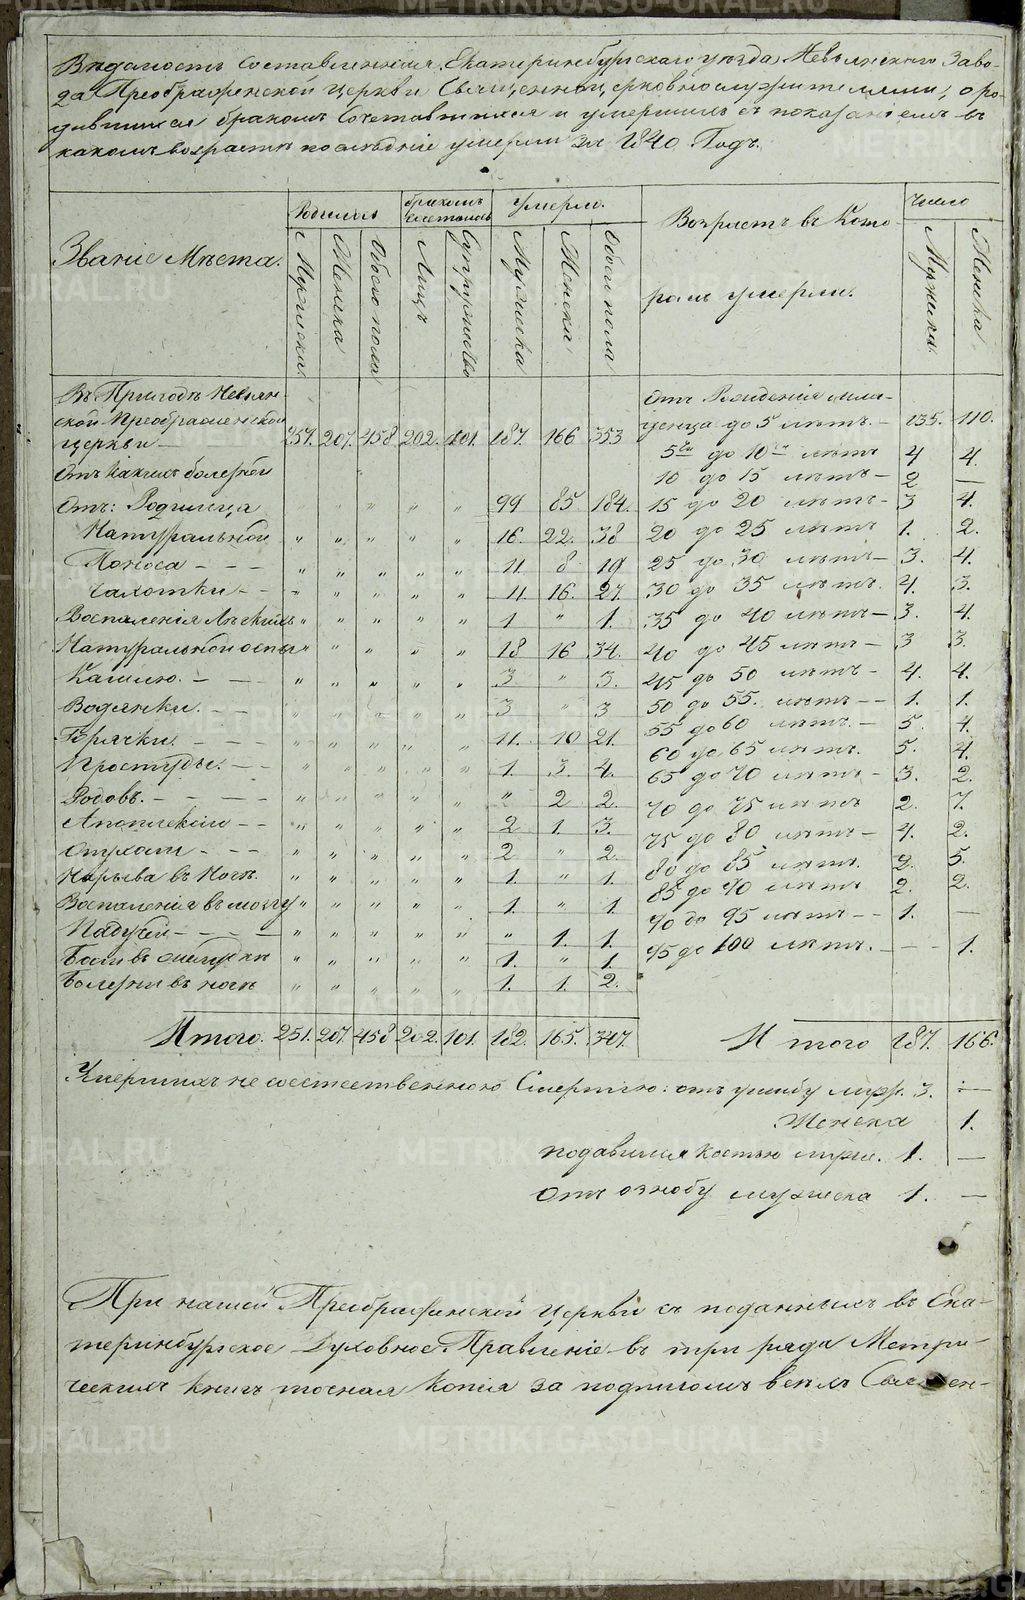 Ведомость Составленная Екатеринбургскаго уезда, Невьянскаго Заво-
да Преображенской Церкви Священноцерковнослужителями, о ро-
дившихся бракомъ Сочетавшихся и умершихъ съ показаніемъ въ
какомъ возрасте последніе умерли За 1840 Годъ.
Званіе Места.
Родилось
бракомъ сочеталось
Умерло.
Возрастъ въ Кото-
ромъ умерли.
Число
Мужеска.
Женска
Обоего пола
Лицъ
Супружествъ
Мужеска
Женска
Обоего пола
Мужеска.
Женска.
Въ Приходе Невьян-
ской Преображенской
церкви — 251. 207. 458 202. 101. 187. 166 353
Отъ Какихъ болезней
Отъ: Родимца " " " 99 85. 184.
Натуральной " " " " " 16. 22. 38
Поноса - - - " " " " " 11 8 19
Чахотки - - " " " " " 11 16. 27.
Воспаленія Легкихъ " " " " " 1 " 1.
Натуральной оспы " " " " " 18 16 34.
Кашлю. - - " " " " " 3 " 3.
Водянки. - - " " " " " 3 " 3
Горячки. - - - " " " " " 11. 10 21.
Простуды. - - " " " " " 1. 3. 4.
Родовъ. - - - - " " " " " " 2 2.
Апоплексіи - - " " " " " 2 1. 3.
Опухоли - - - " " " " " 2 " 2.
Нарыва въ Ноге. " " " " " 1. " 1.
Воспаленія въ мозгу " " " " " 1. " 1
Падучей - - - - " " " " " " 1. 1.
Боли въ желудке " " " " " 1. " 1.
Болезни въ ноге " " " " " 1. 1. 2.
Итого. 251. 207. 458 202. 101. 182. 165. 347.
Отъ Рожденія мла-
денца до 5 летъ. - 135. 110.
5ти до 10ти летъ 4 4.
10 до 15 летъ - 2 —
15 до 20 летъ - 3 4.
20 до 25 летъ 1. 2.
25 до 30 летъ - 3. 4.
30 до 35 летъ. 4. 3.
35 до 40 летъ - 3. 4.
40 до 45 летъ - 3 3.
45 до 50 летъ - 4. 4.
50 до 55. летъ - - 1. 1.
55 до 60 летъ. - 5. 4.
60 до 65 летъ. 5. 4.
65 до 70 летъ - 3. 2.
70 до 75 летъ 2. 7.
75 до 80 летъ - 4. 2.
80 до 85 летъ. 2. 5.
85 до 90 летъ 2. 2.
90 до 95 летъ - - 1. —
95 до 100 летъ. - - - 1.
Итого 187. 166.
Умершихъ не соестественною Смертію: отъ ушибу муж. 3. —
Женска 1.
подавился Костью муж. 1. —
Отъ ознобу мужеска 1. —
При нашей Преображенской Церкви съ поданныхъ въ Ека-
теринбургское Духовное Правленіе въ три ряда Метри-
ческихъ Книгъ точная Копія За подписомъ всехъ Священ-
METRIKI.GASO-URAL.RU